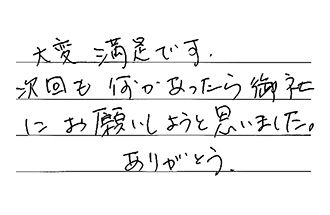 大変満足です.
次回も何かあったら御社
にお願いしようと思いました。
ありがとう.